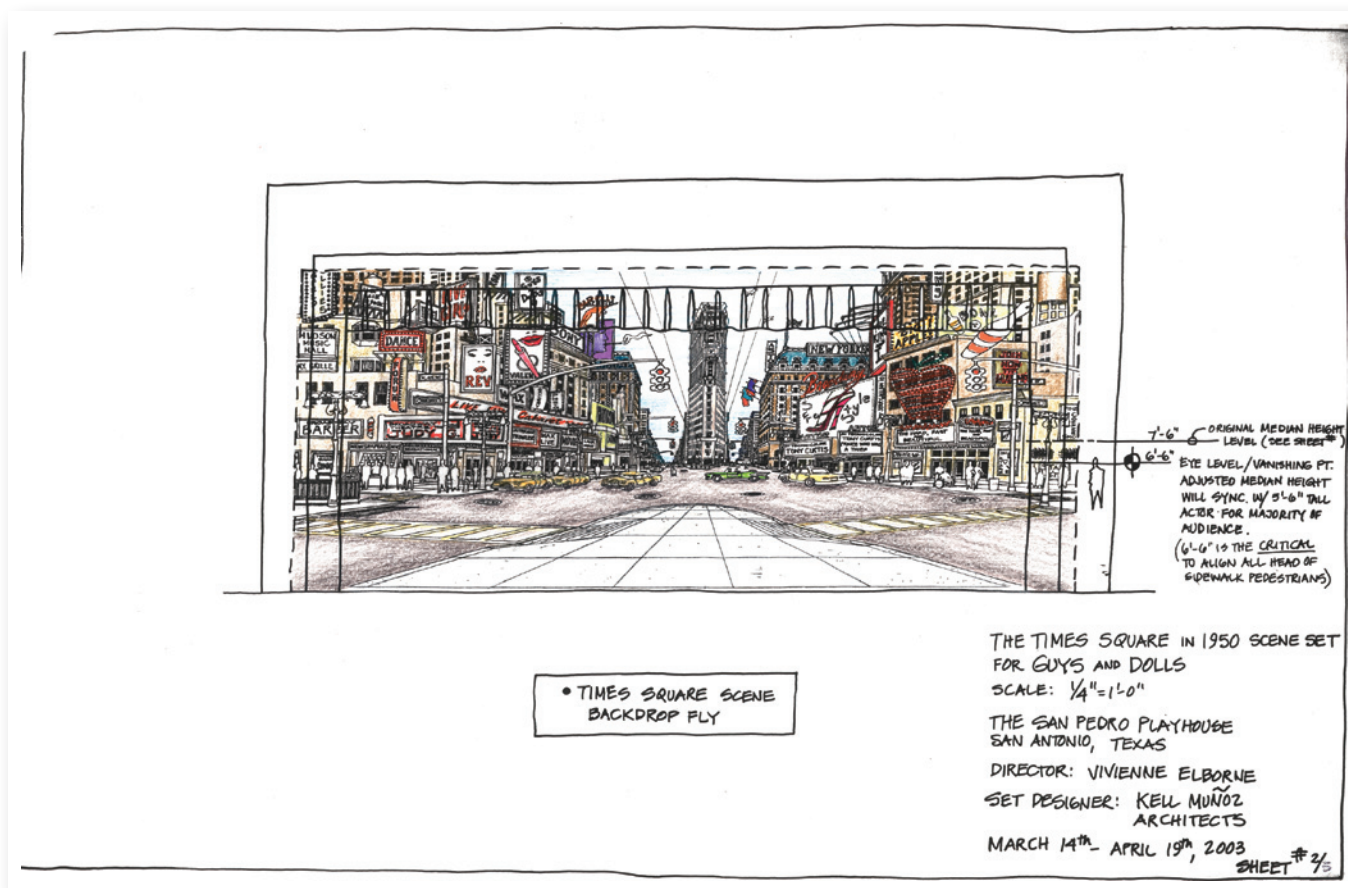 HUDSON
MUSIC
HALL
DANCE
REV
BARBER
NEW YORKER
Style
TONY CURTIS
TONY CURTIS
7'-6"
ORIGINAL MEDIAN HEIGHT
LEVEL (SEE SHEET#)
6'-6"
EYE LEVEL/VANISHING PT.
ADJUSTED MEDIAN HEIGHT
WILL SYNC. W/ 5'-6" TALL
ACTOR FOR MAJORITY OF
AUDIENCE.
(6'-6" IS THE CRITICAL
TO ALIGN ALL HEAD OF
SIDEWALK PEDESTRIANS)
• TIMES SQUARE SCENE
BACKDROP FLY
THE TIMES SQUARE IN 1950 SCENE SET
FOR GUYS AND DOLLS
SCALE: 1/4"=1'-0"
THE SAN PEDRO PLAYHOUSE
SAN ANTONIO, TEXAS
DIRECTOR: VIVIENNE ELBORNE
SET DESIGNER: KELL MUÑOZ
ARCHITECTS
MARCH 14th - APRIL 19th, 2003
SHEET # 2/5